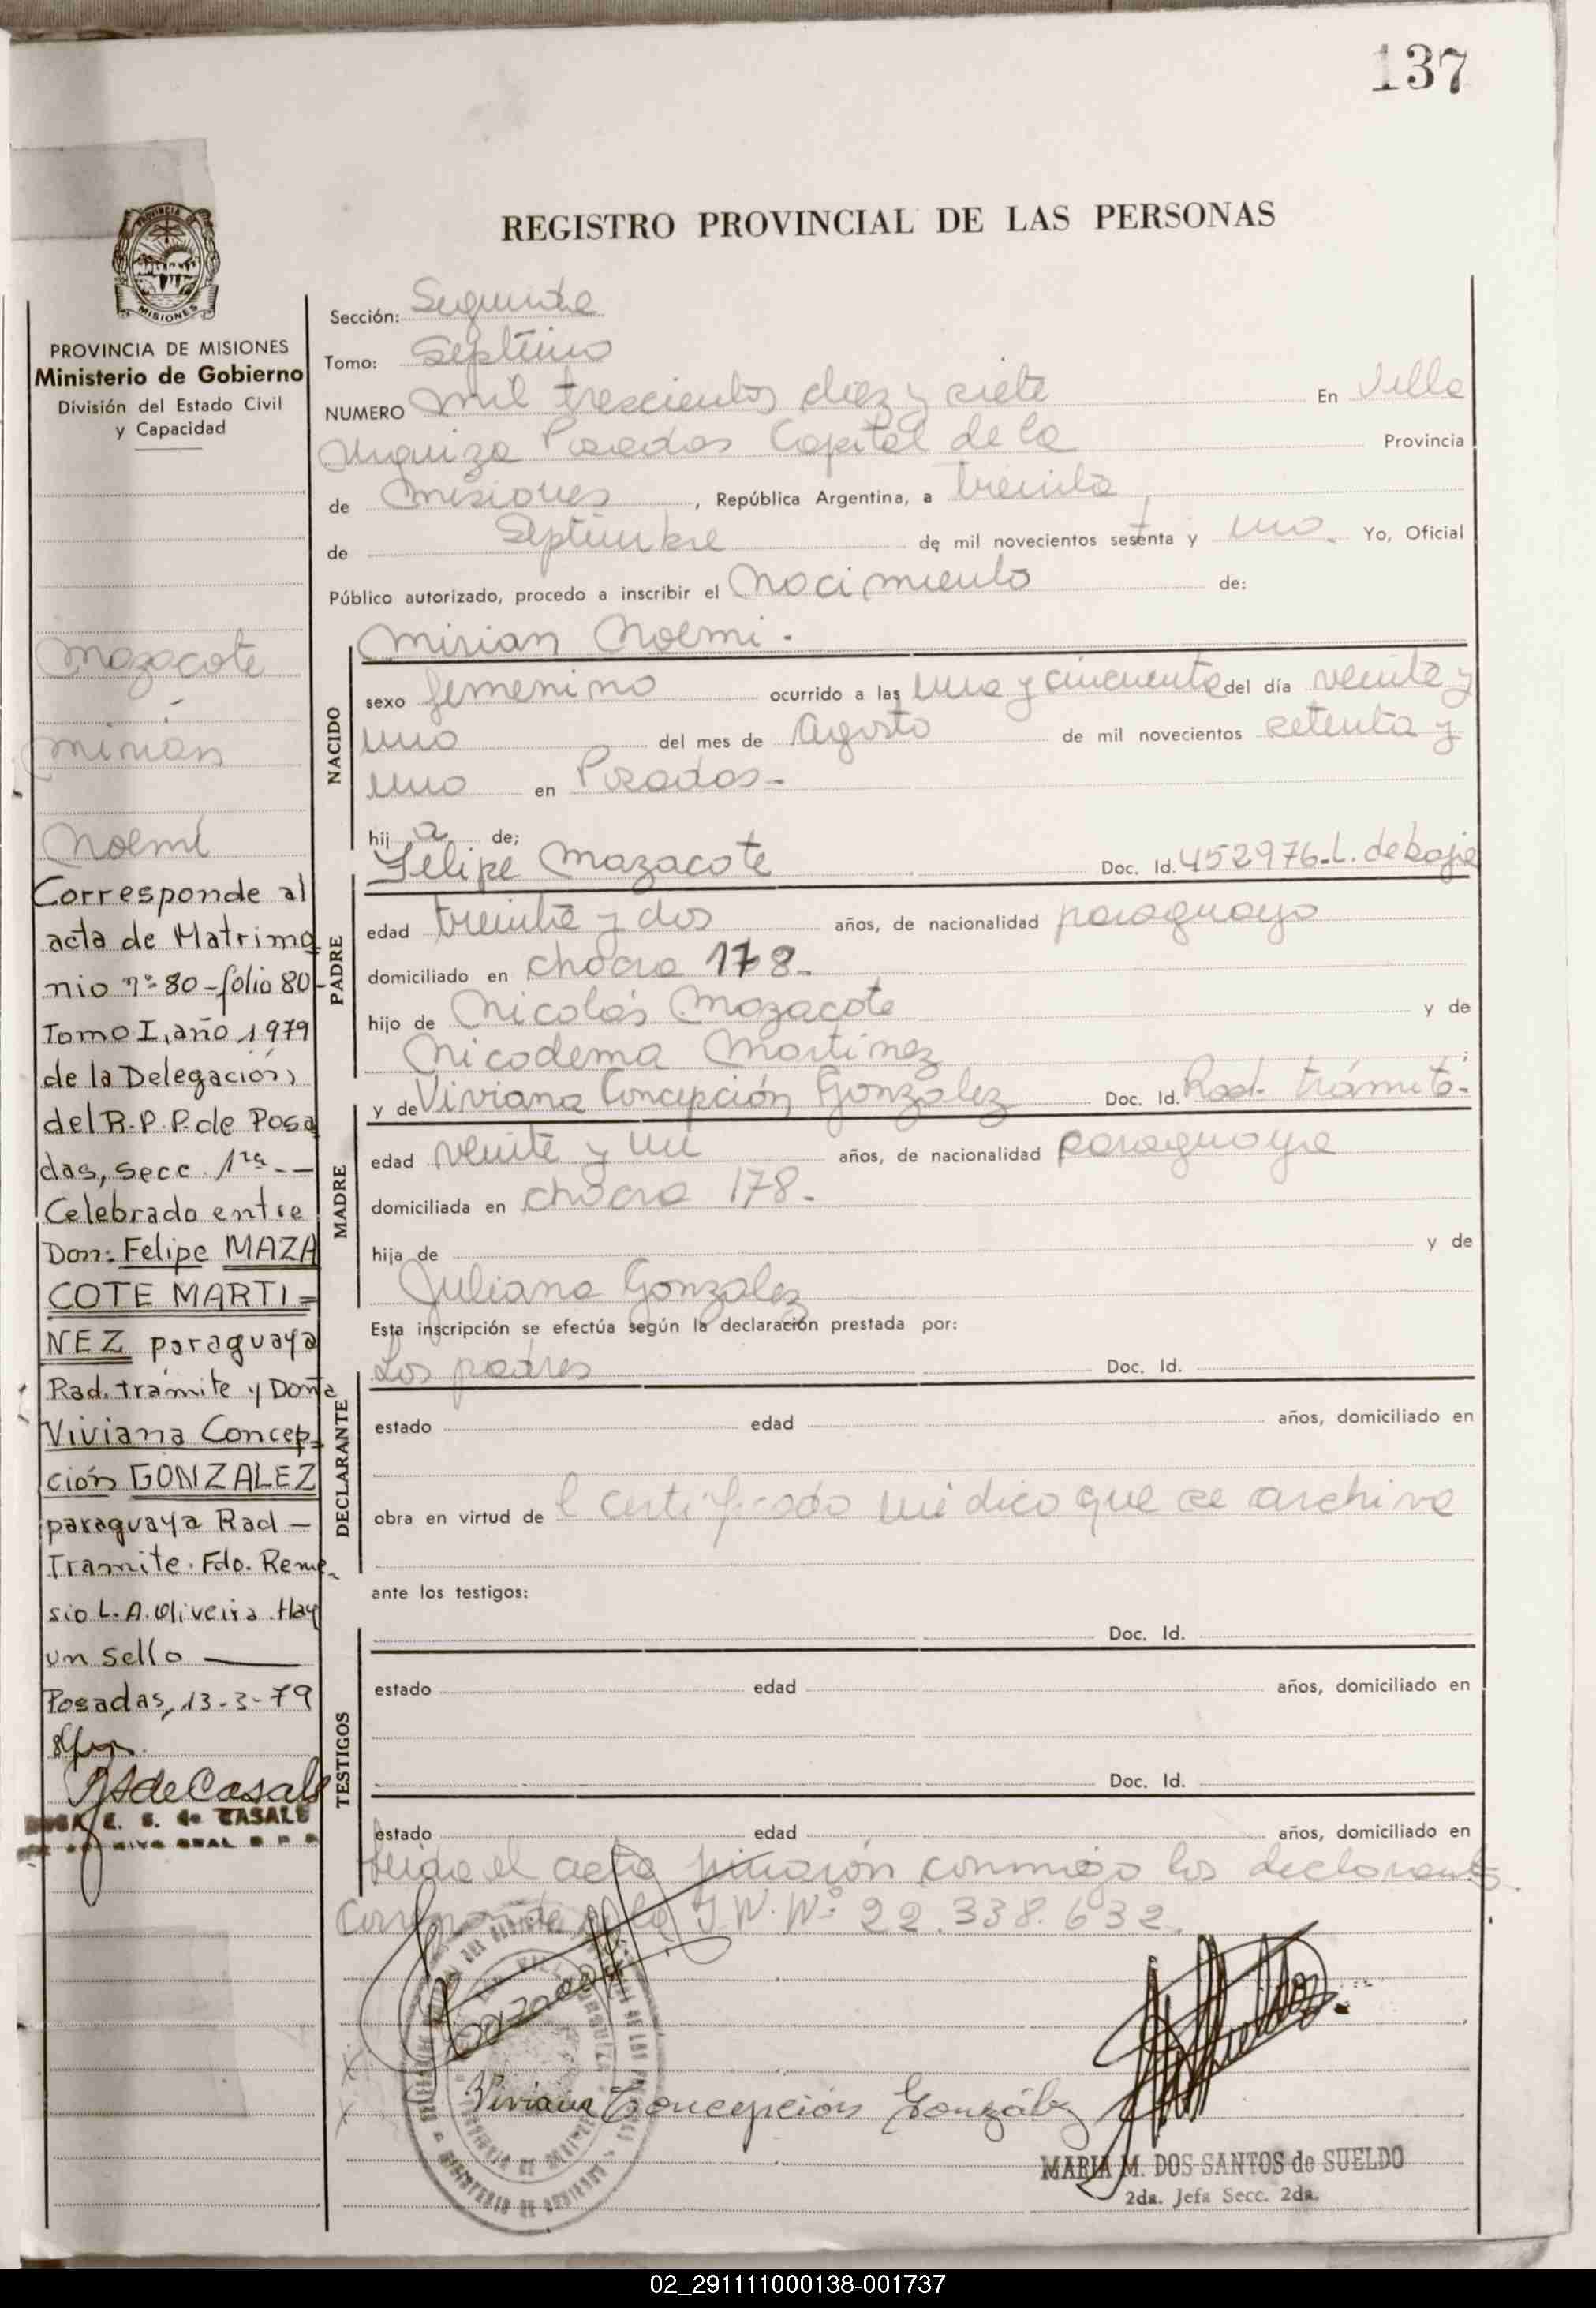 137
REGISTRO PROVINCIAL DE LAS PERSONAS
PROVINCIA DE MISIONES
Ministerio de Gobierno
División del Estado Civil
y Capacidad
Mazacote
-
Mirian
Noemí
Corresponde al
acta de Matrimo
nio nº 80 - folio 80-
Tomo I, año 1979
de la Delegación
del R.P.P. de Posa
das, secc. 1ra. —
Celebrado entre
Don: Felipe MAZA
COTE MARTI=
NEZ paraguaya
Rad. tramite y Doña
Viviana Concep-
ción GONZALEZ
paraguaya Rad —
Tramite. Fdo. Reme-
sio L. A. Oliveira. Hay
un sello —
Posadas, 13-3-79
de Casals
E. S. de CASALS
Sección: Segunda
Tomo: Septimo
NUMERO Mil trescientos diez y siete En Villa
Urquiza Posadas Capital de la Provincia
de Misiones, República Argentina, a treinta
de Septiembre de mil novecientos sesenta y uno. Yo, Oficial
Público autorizado, procedo a inscribir el Nacimiento de:
Mirian Noemi.
NACIDO
sexo femenino ocurrido a las una y cincuenta del día veinte y
uno del mes de Agosto de mil novecientos setenta y
uno en Posadas-
hij a de;
Felipe Mazacote Doc. Id. 452976-L. de baja
PADRE
edad treinta y dos años, de nacionalidad paraguayo
domiciliado en chacra 178.
hijo de Nicolás Mazacote y de
Nicodema Martinez ;
y de Viviana Concepción González Doc. Id. Rad. trámite-
MADRE
edad veinte y un años, de nacionalidad paraguaya
domiciliada en chacra 178.
hija de y de
Juliana Gonzalez
Esta inscripción se efectúa según la declaración prestada por:
Los padres Doc. Id.
DECLARANTE
estado edad años, domiciliado en
obra en virtud de l certificado médico que se archiva
ante los testigos:
Doc. Id.
TESTIGOS
estado edad años, domiciliado en
Doc. Id.
estado edad años, domiciliado en
leida el acta firmaron conmigo los declarantes
Corresponde a la I.N. Nº 22.338.632.
Viviana Concepción González
MARIA M. DOS SANTOS de SUELDO
2da. Jefa Secc. 2da.
02_291111000138-001737